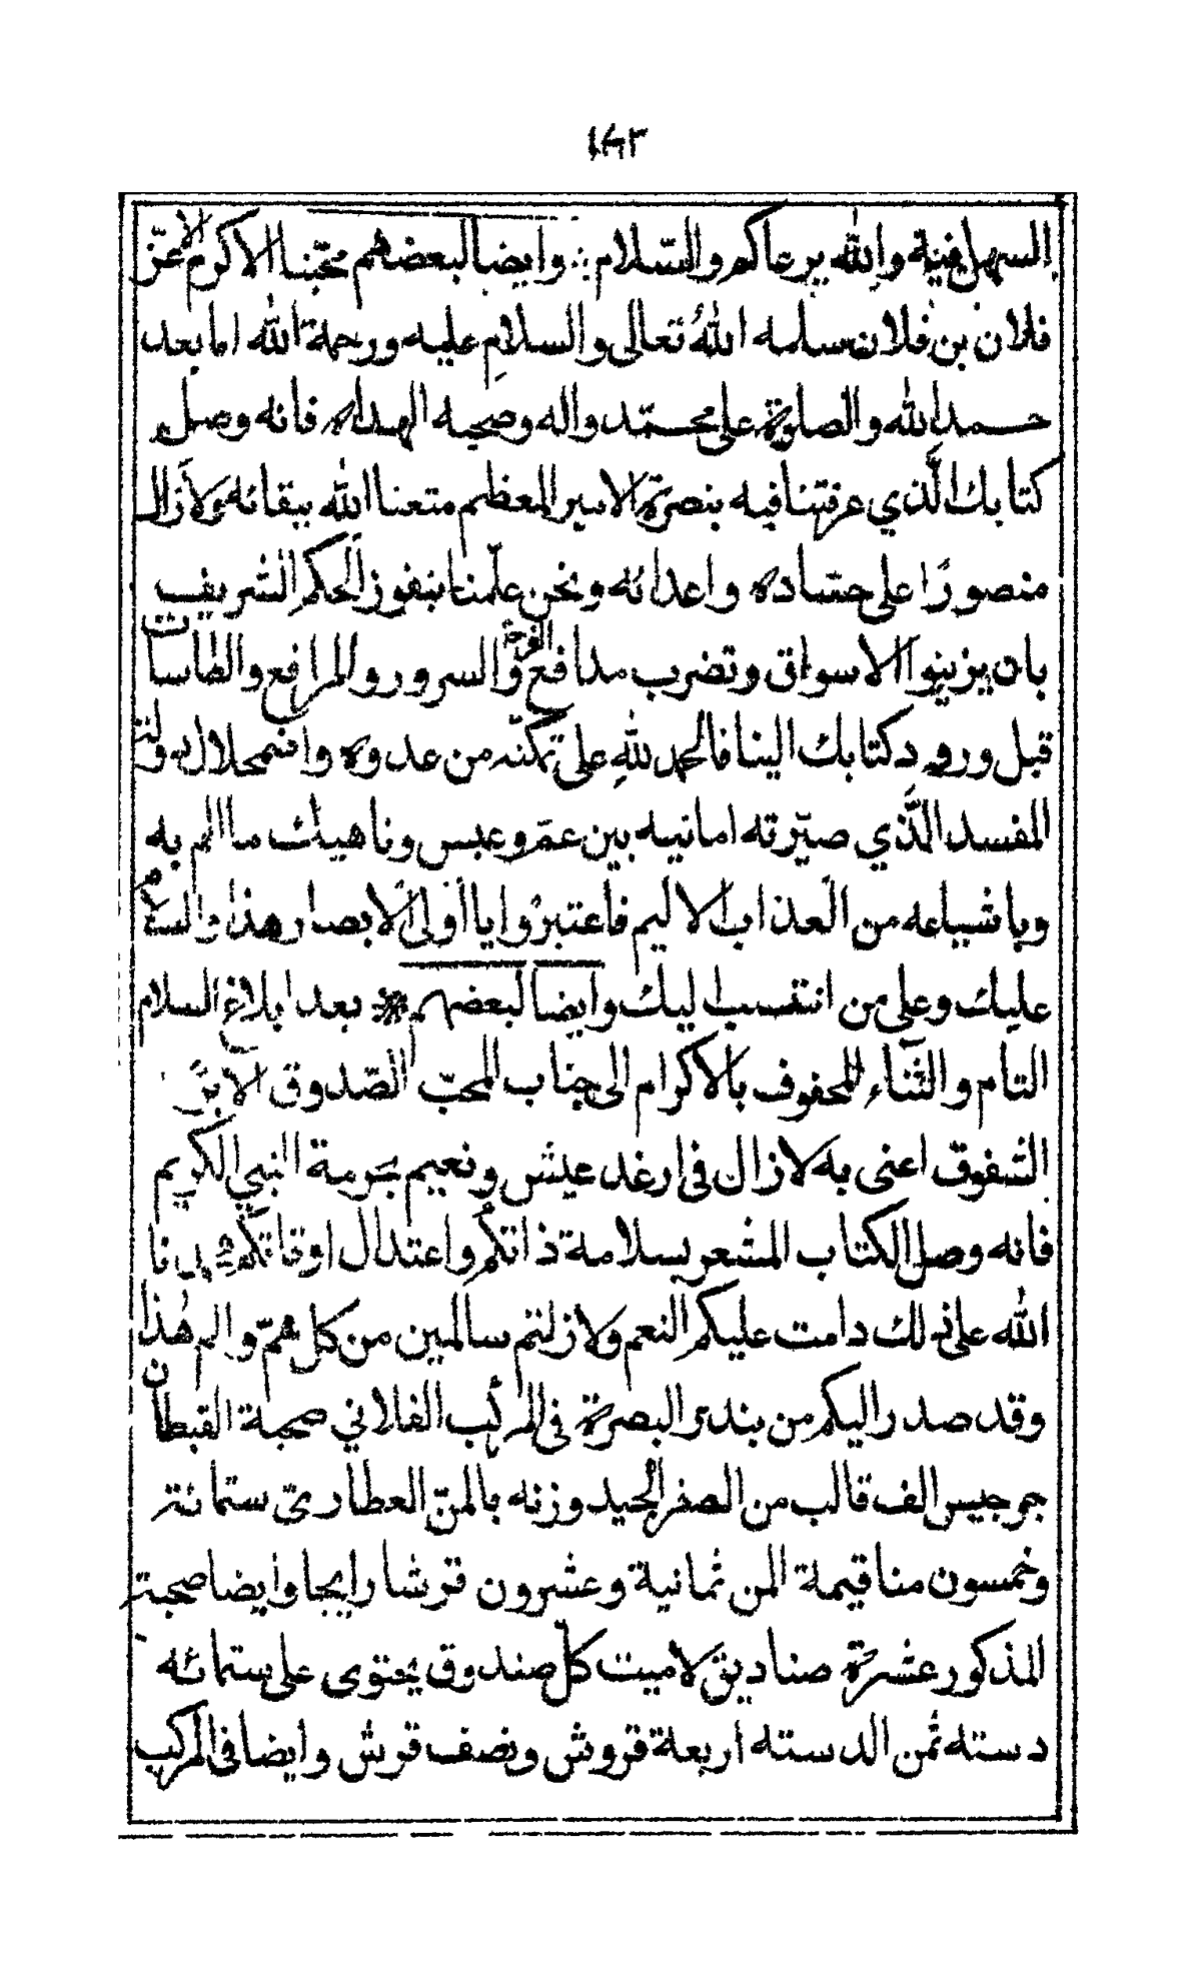 ١٤٣
السهل فينة والله يرعاكم والسّلام وايضا لبعضهم محبّنا الاكرم الاعزّ
فلان بن فلان سلمه اللهُ تعالى والسلام عليه ورحمة الله اما بعد
حمد الله والصلوة على محمّد واله وصحبه الهداه فانه وصل
كتابك الَّذي عرفتنا فيه بنصرة الامير المعظم متعنا الله ببقائه ولازال
منصورًا على حسّاده واعدائه ونحن علّمنا بنفوز الحكم الشريف
بان يزينوا الاسواق وتضرب مدافع الفرحة والسرور والمرافع والطاسات
قبل ورود كتابك الينا فالحمد للهِ على تمكنّه من عدوه واضمحلال دولته
المفسد الَّذي صيّرته امانيه بين عمّ وعبس وناهيك ما الم به
وباشياعه من العذاب الاليم فاعتبرُوا يا اولى الابصار هذا والسلام
عليك وعلى من انتسب اليك وايضا لبعضهم بعد ابلاغ السلام
التام والثّنآء المحفوف بالاكرام الى جناب المحبّ الصّدوق الابرّ
الشفوق اعنى به لازال فى ارغد عيش ونعيم بحرمة النبي الكريم
فانه وصل الكتاب المشعر بسلامة ذاتكُم واعتدال اوقاتكم حمدنا
الله على ذلك دامت عليكم النعم ولازلتم سالمين من كل همّ والم هٰذا
وقد صدر اليكم من بندر البصرة فى المركب الفلاني صحبة القبطان
جرجيس الف قالب من الصفر الجيد وزنه بالمنّ العطاريّ ستمائة
وخمسون منا قيمة المن ثمانية وعشرون قرشا رايجا وايضا صحبة
المذكور عشرة صناديق لاميت كلّ صندوق يحتوى على ستمائه
دسته ثمن الدسته اربعة قروش ونصف قرش وايضا فى المركب